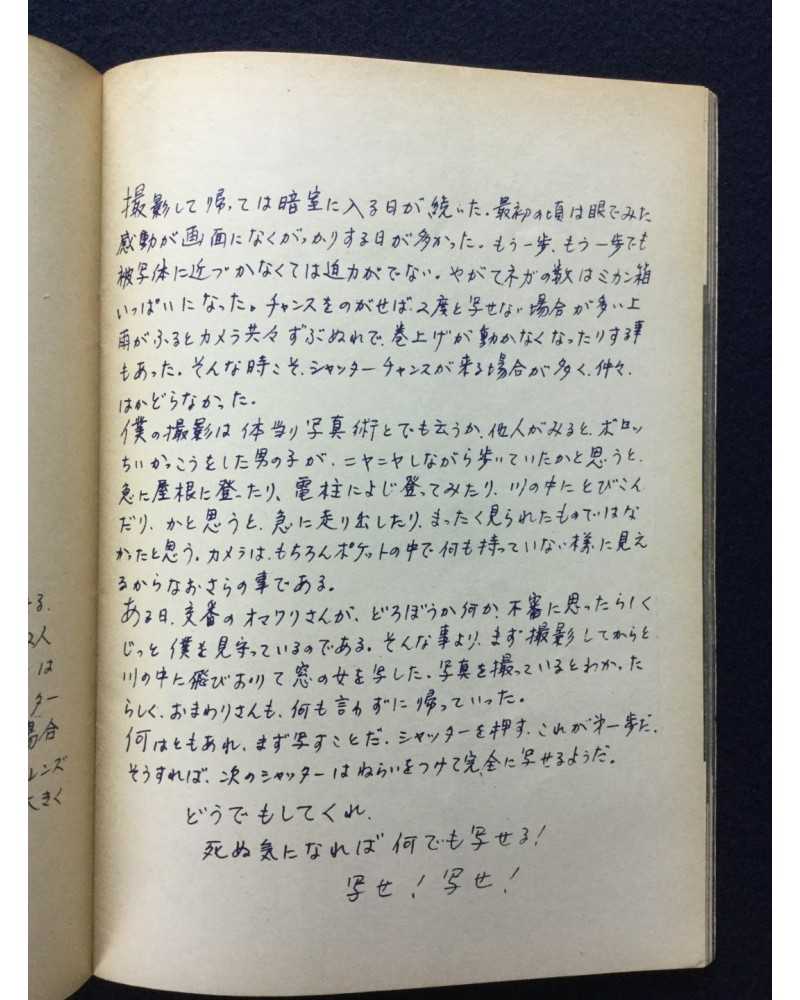 撮影して帰っては暗室に入る日が続いた。最初の頃は眼でみた
感動が画面になくがっかりする日が多かった。もう一歩、もう一歩でも
被写体に近づかなくては迫力がでない。やがてネガの数はミカン箱
いっぱいになった。チャンスをのがせば、2度と写せない場合が多い上
雨がふるとカメラ共々ずぶぬれで、巻上げが動かなくなったりする事
もあった。そんな時こそ、シャッターチャンスが来る場合が多く、仲々、
はかどらなかった。
僕の撮影は体当り写真術とでも云うか、他人がみると、ボロッ
ちいかっこうをした男の子が、ニヤニヤしながら歩いていたかと思うと、
急に屋根に登ったり、電柱によじ登ってみたり、川の中にとびこん
だり、かと思うと、急に走り出したり、まったく見られたものではな
かったと思う。カメラは、もちろんポケットの中で何も持っていない様に見え
るからなおさらの事である。
ある日、交番のオマワリさんが、どろぼうか何か、不審に思ったらしく
じっと僕を見守っているのである。そんな事より、まず撮影してからと、
川の中に飛びおりて窓の女を写した。写真を撮っているとわかった
らしく、おまわりさんも、何も言わずに帰っていった。
何はともあれ、まず写すことだ。シャッターを押す、これが第一歩だ。
そうすれば、次のシャッターはねらいをつけて完全に写せるようだ。
どうでもしてくれ、
死ぬ気になれば何でも写せる!
写せ!写せ!
る、
2人
は
ター
場合
レンズ
大きく